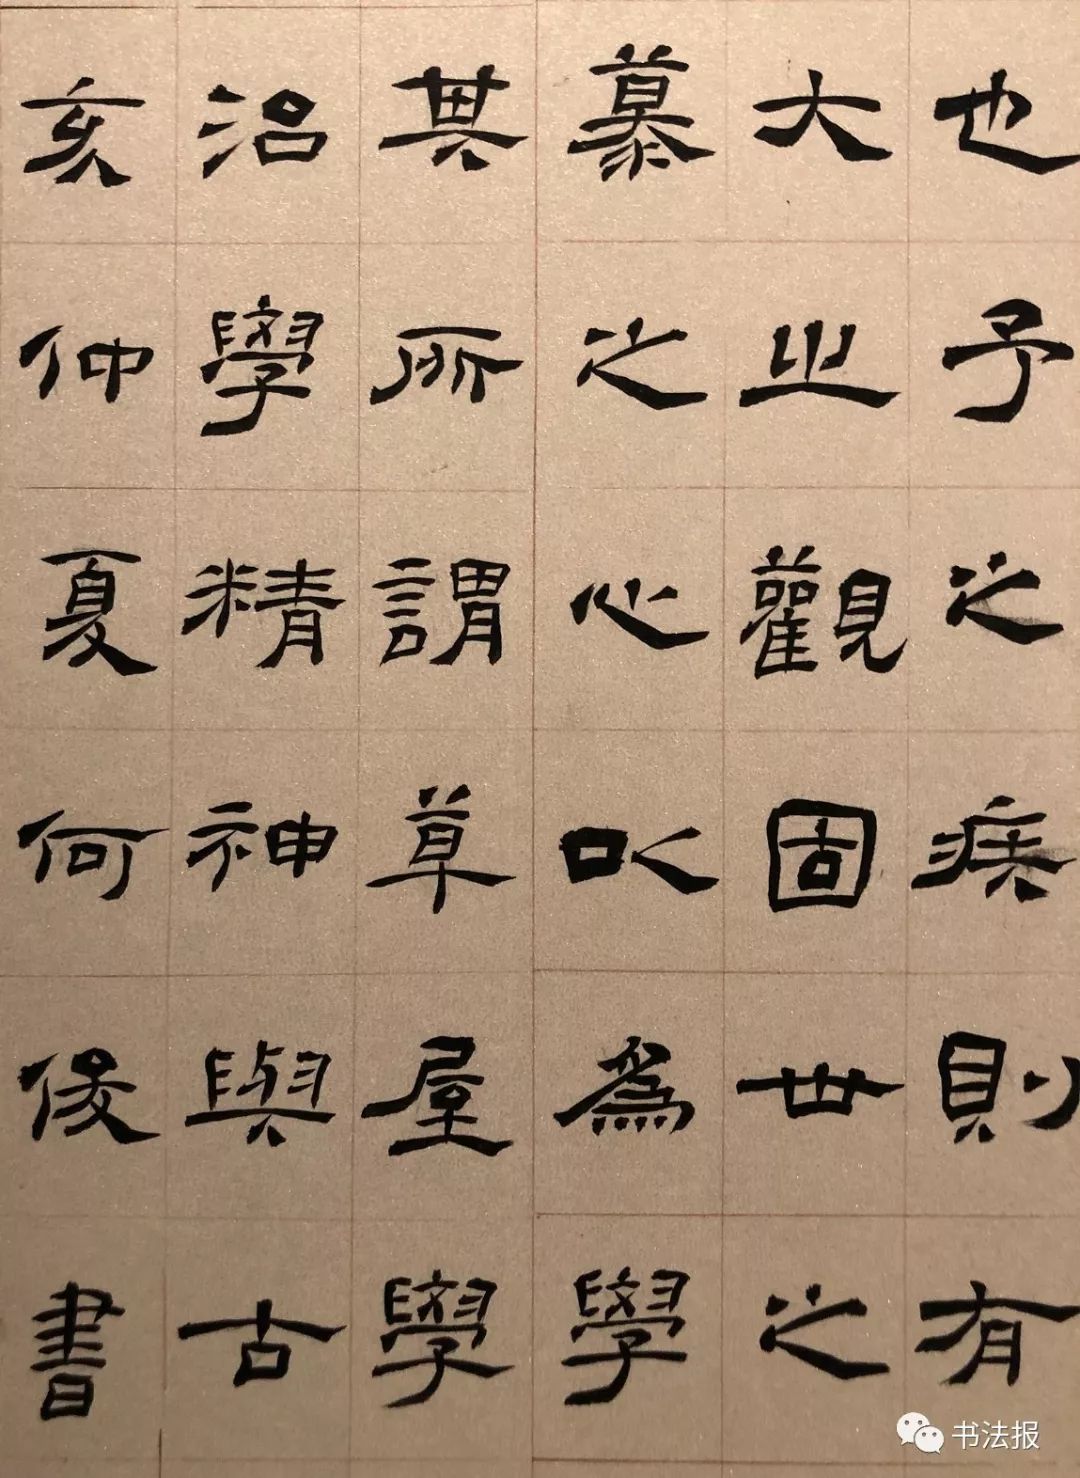 也予之疾則有
大觀固世之
慕之心以為學
其所謂草屋學
治學精神與古
亥仲夏何俊書
书法报